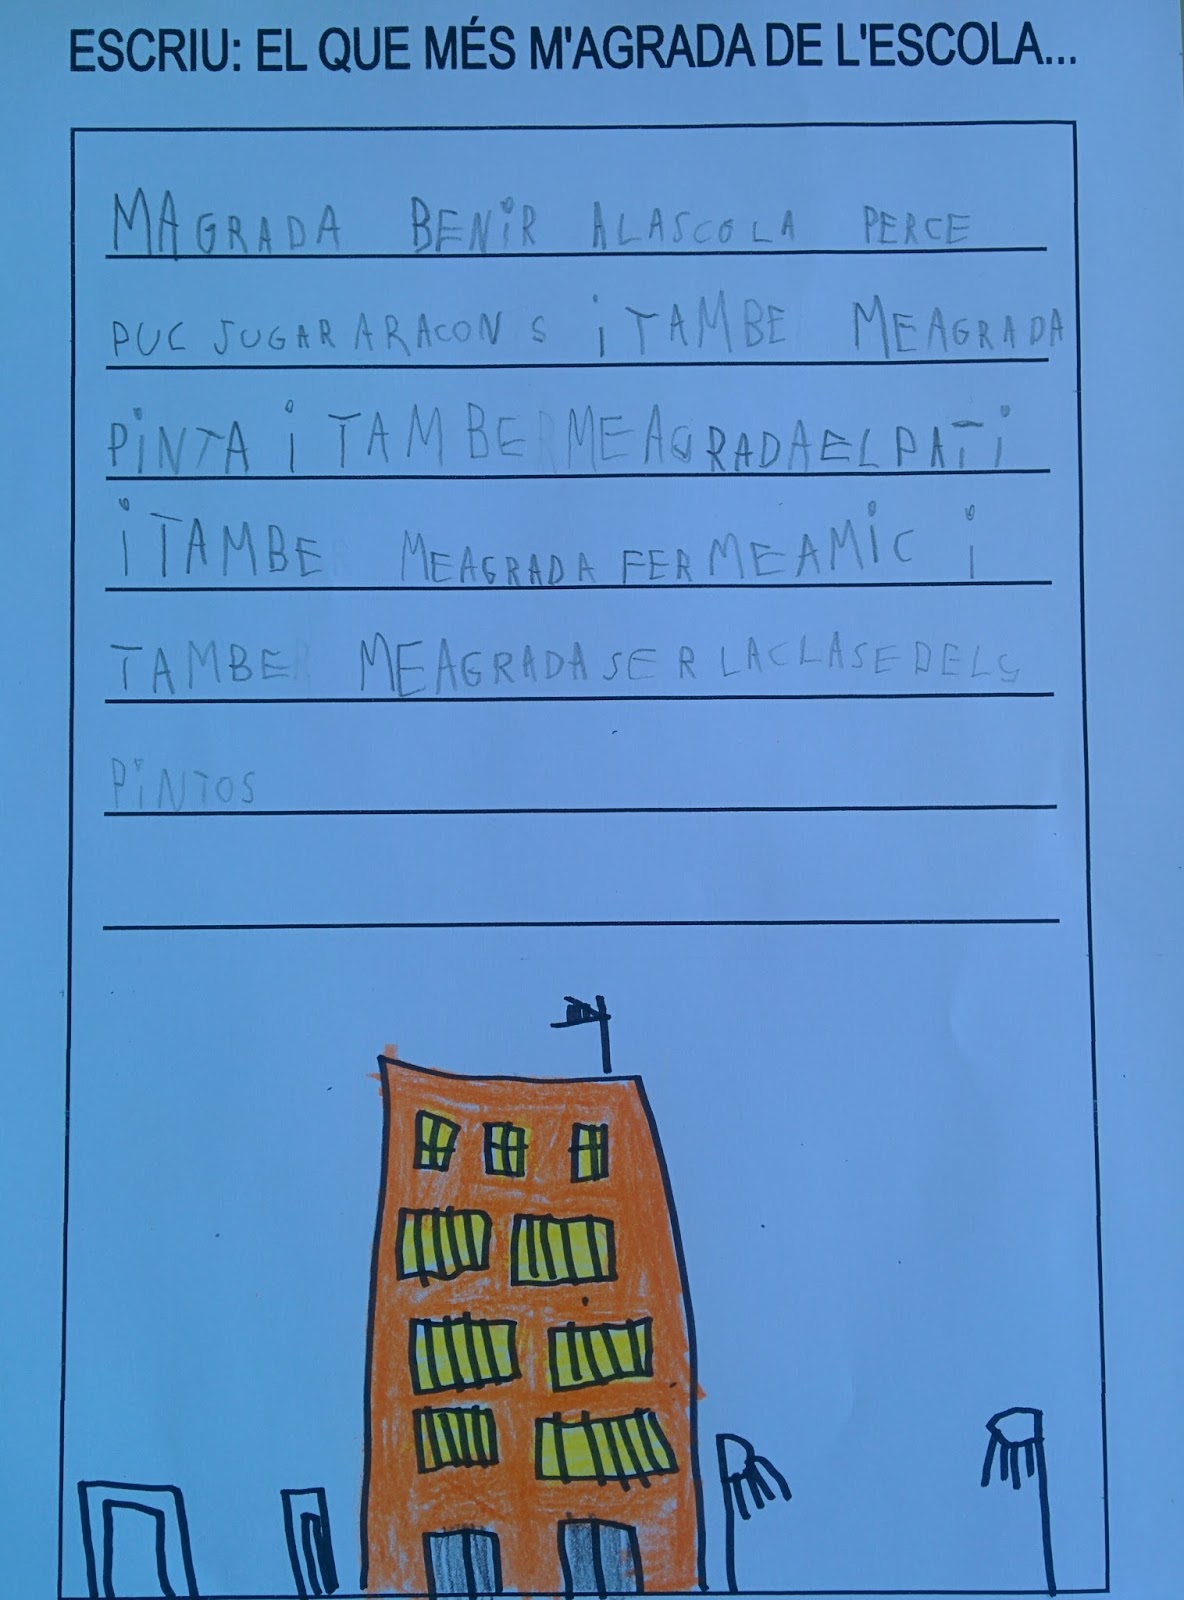 ESCRIU: EL QUE MÉS M'AGRADA DE L'ESCOLA...
MAGRADA BENiR ALASCOLA PERCE
PUC JUGAR ARACONS i TAMBE MEAGRADA
PiNTA i TAMBE MEAGRADAELPATi
i TAMBE MEAGRADA FER MEAMiC i
TAMBE MEAGRADA SER LACLASE DELS
PiNTOS